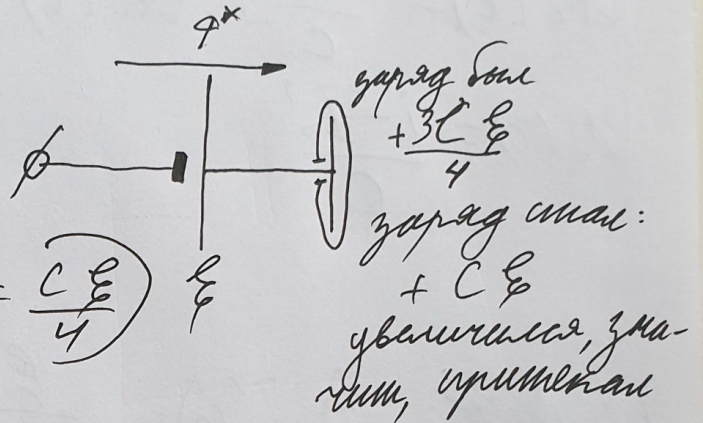 q*
заряд был
+ 3Cℰ/4
заряд стал:
= Cℰ/4
ℰ
+ Cℰ
увеличился, зна-
чит, притекал